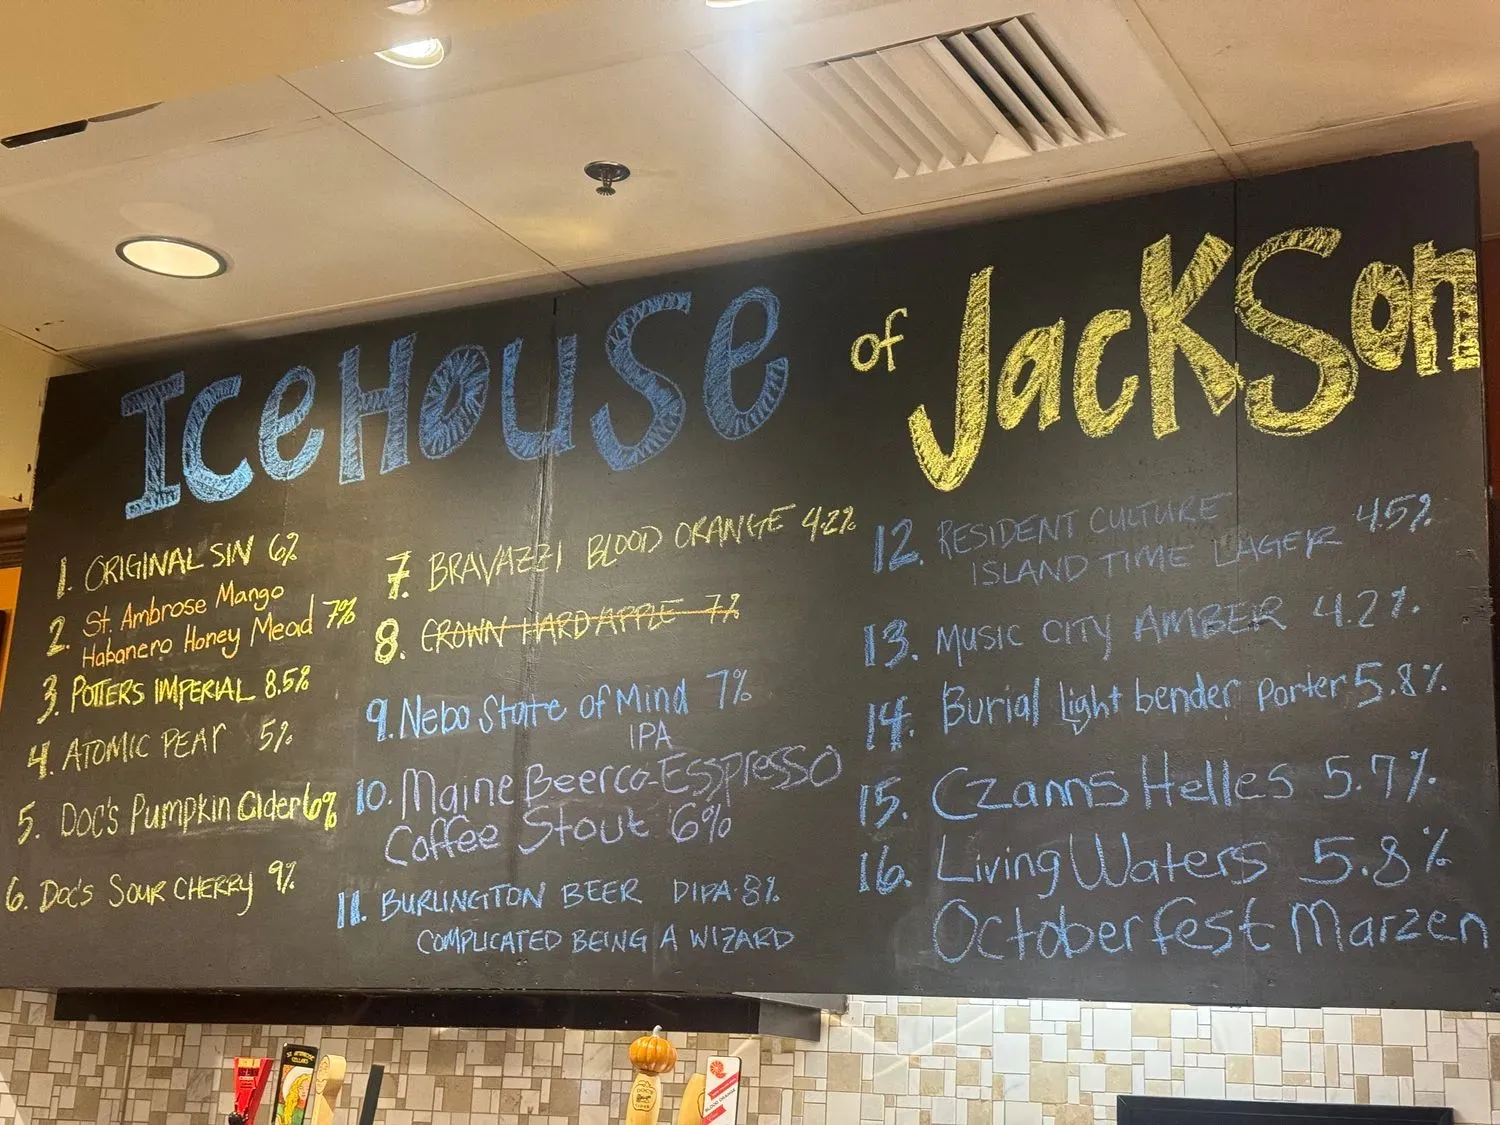 IceHouse of Jackson
1. ORIGINAL SIN 6%
2. St. Ambrose Mango
Habanero Honey Mead 7%
3. POTTERS IMPERIAL 8.5%
4. ATOMIC PEAR 5%
5. DOC'S PUMPKIN Cider 6%
6. DOC'S SOUR CHERRY 9%
7. BRAVAZZI BLOOD ORANGE 4.2%
8. CROWN HARD APPLE 7%
9. Nebo State of Mind 7%
IPA
10. Maine Beerco-Esspresso
Coffee Stout 6%
11. BURLINGTON BEER DIPA 8%
COMPLICATED BEING A WIZARD
12. RESIDENT CULTURE
ISLAND TIME LAGER 4.5%
13. MUSIC CITY AMBER 4.2%
14. Burial Light bender Porter 5.8%
15. Czanns Helles 5.7%
16. Living Waters 5.8%
Octoberfest Marzen